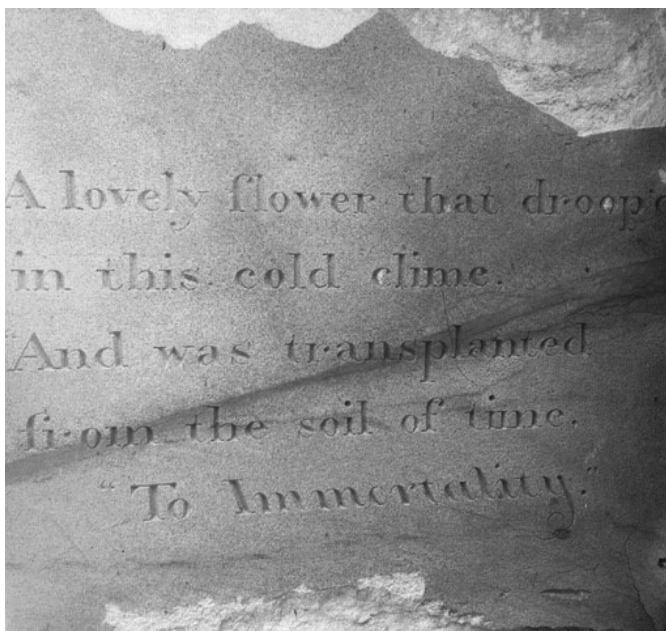 A lovely flower that droop'd
in this cold clime.
"And was transplanted
from the soil of time.
"To Immortality."